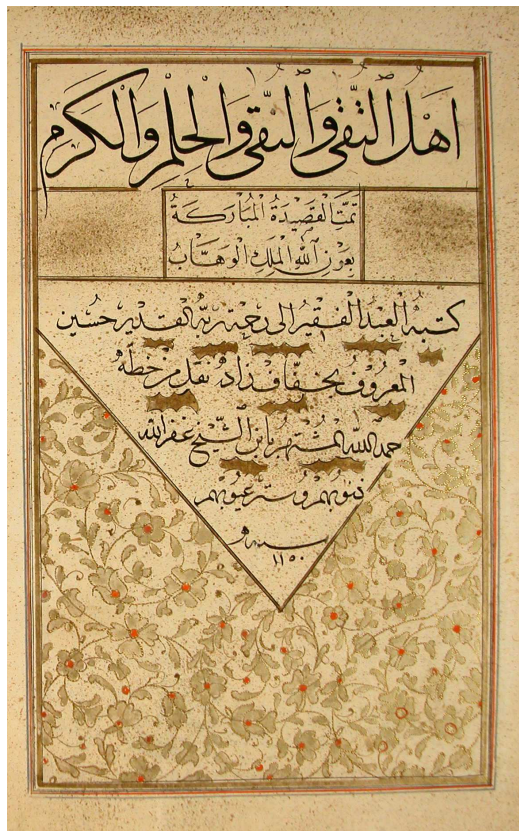 اَهْلُ التُّقٰى وَالنُّقٰى وَالْحِلْمِ وَالْكَرَمِ
تَمَّتِ الْقَصِيْدَةُ الْمُبَارَكَةُ
بِعَوْنِ اللهِ الْمَلِكِ الْوَهَّابُ
كتبه العبد الفقير الى رحمة ربه القدير حسين
المعروف بخفاف زاده نقل من خطه
حمد الله المشتهر بابن الشيخ غفر الله
ذنوبهم وستر عيوبهم
سنه
١١٥٠